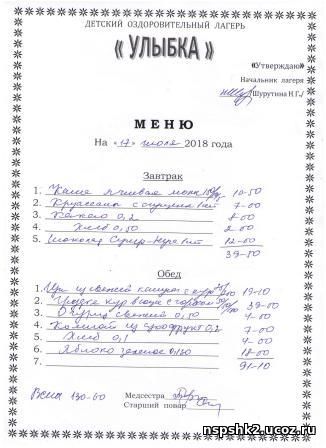 ДЕТСКИЙ ОЗДОРОВИТЕЛЬНЫЙ ЛАГЕРЬ
« УЛЫБКА »
«Утверждаю»
Начальник лагеря
/Шурутина Н Г./
МЕНЮ
На «17» июля 2018 года
Завтрак
1. Каша ячневая мол 10-50
2. Круассаны с сгущенк 1шт 7-00
3. Какао 0,2 8-00
4. Хлеб 0,50 2-00
5. Шоколад 1шт 12-00
39-50
Обед
1. Щи из свежей капусты с 19-10
2. 39-00
3. Огурец свежий 0,50 4-00
4. Компот из сухофрукт 0,2 7-00
5. Хлеб 0,1 4-00
6. Яблоко зеленое 0,130 18-00
7. 91-10
Всего 130-60
Медсестра
Старший повар
www.nspshk2.ucoz.ru